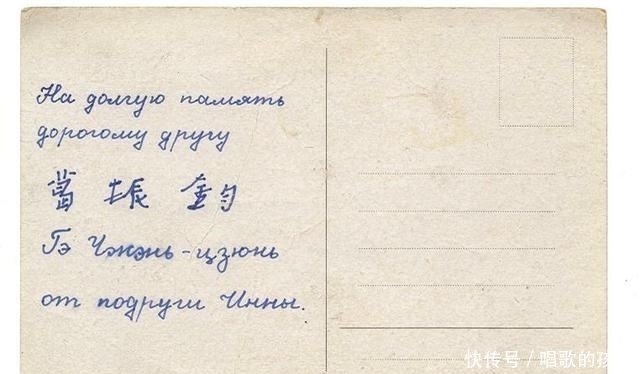 На долгую память
дорогому другу
葛 振 鈞
Гэ Чжэнь-цзюнь
от подруги Инны.
快传号／唱歌的孩